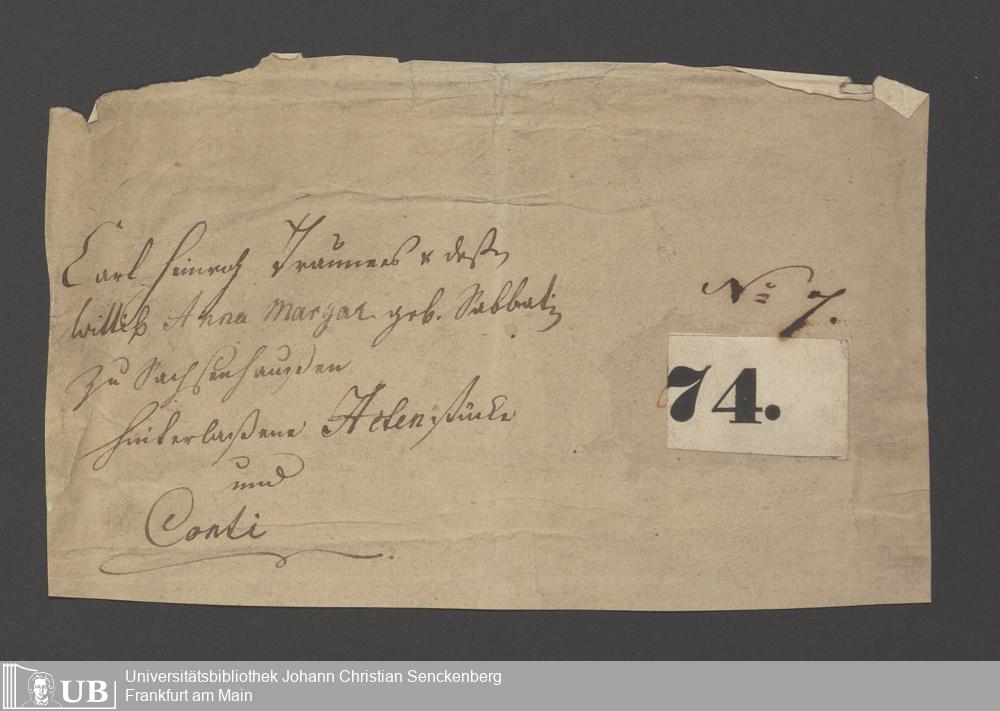 Carl Heinrich Träuneres & deßen
Wittib Anna Margar. geb. Sabbati
zu Sachsenhaußen
hinterlaßene Actenstücke
und
Conti
No 7.
74.
UB
Universitätsbibliothek Johann Christian Senckenberg
Frankfurt am Main